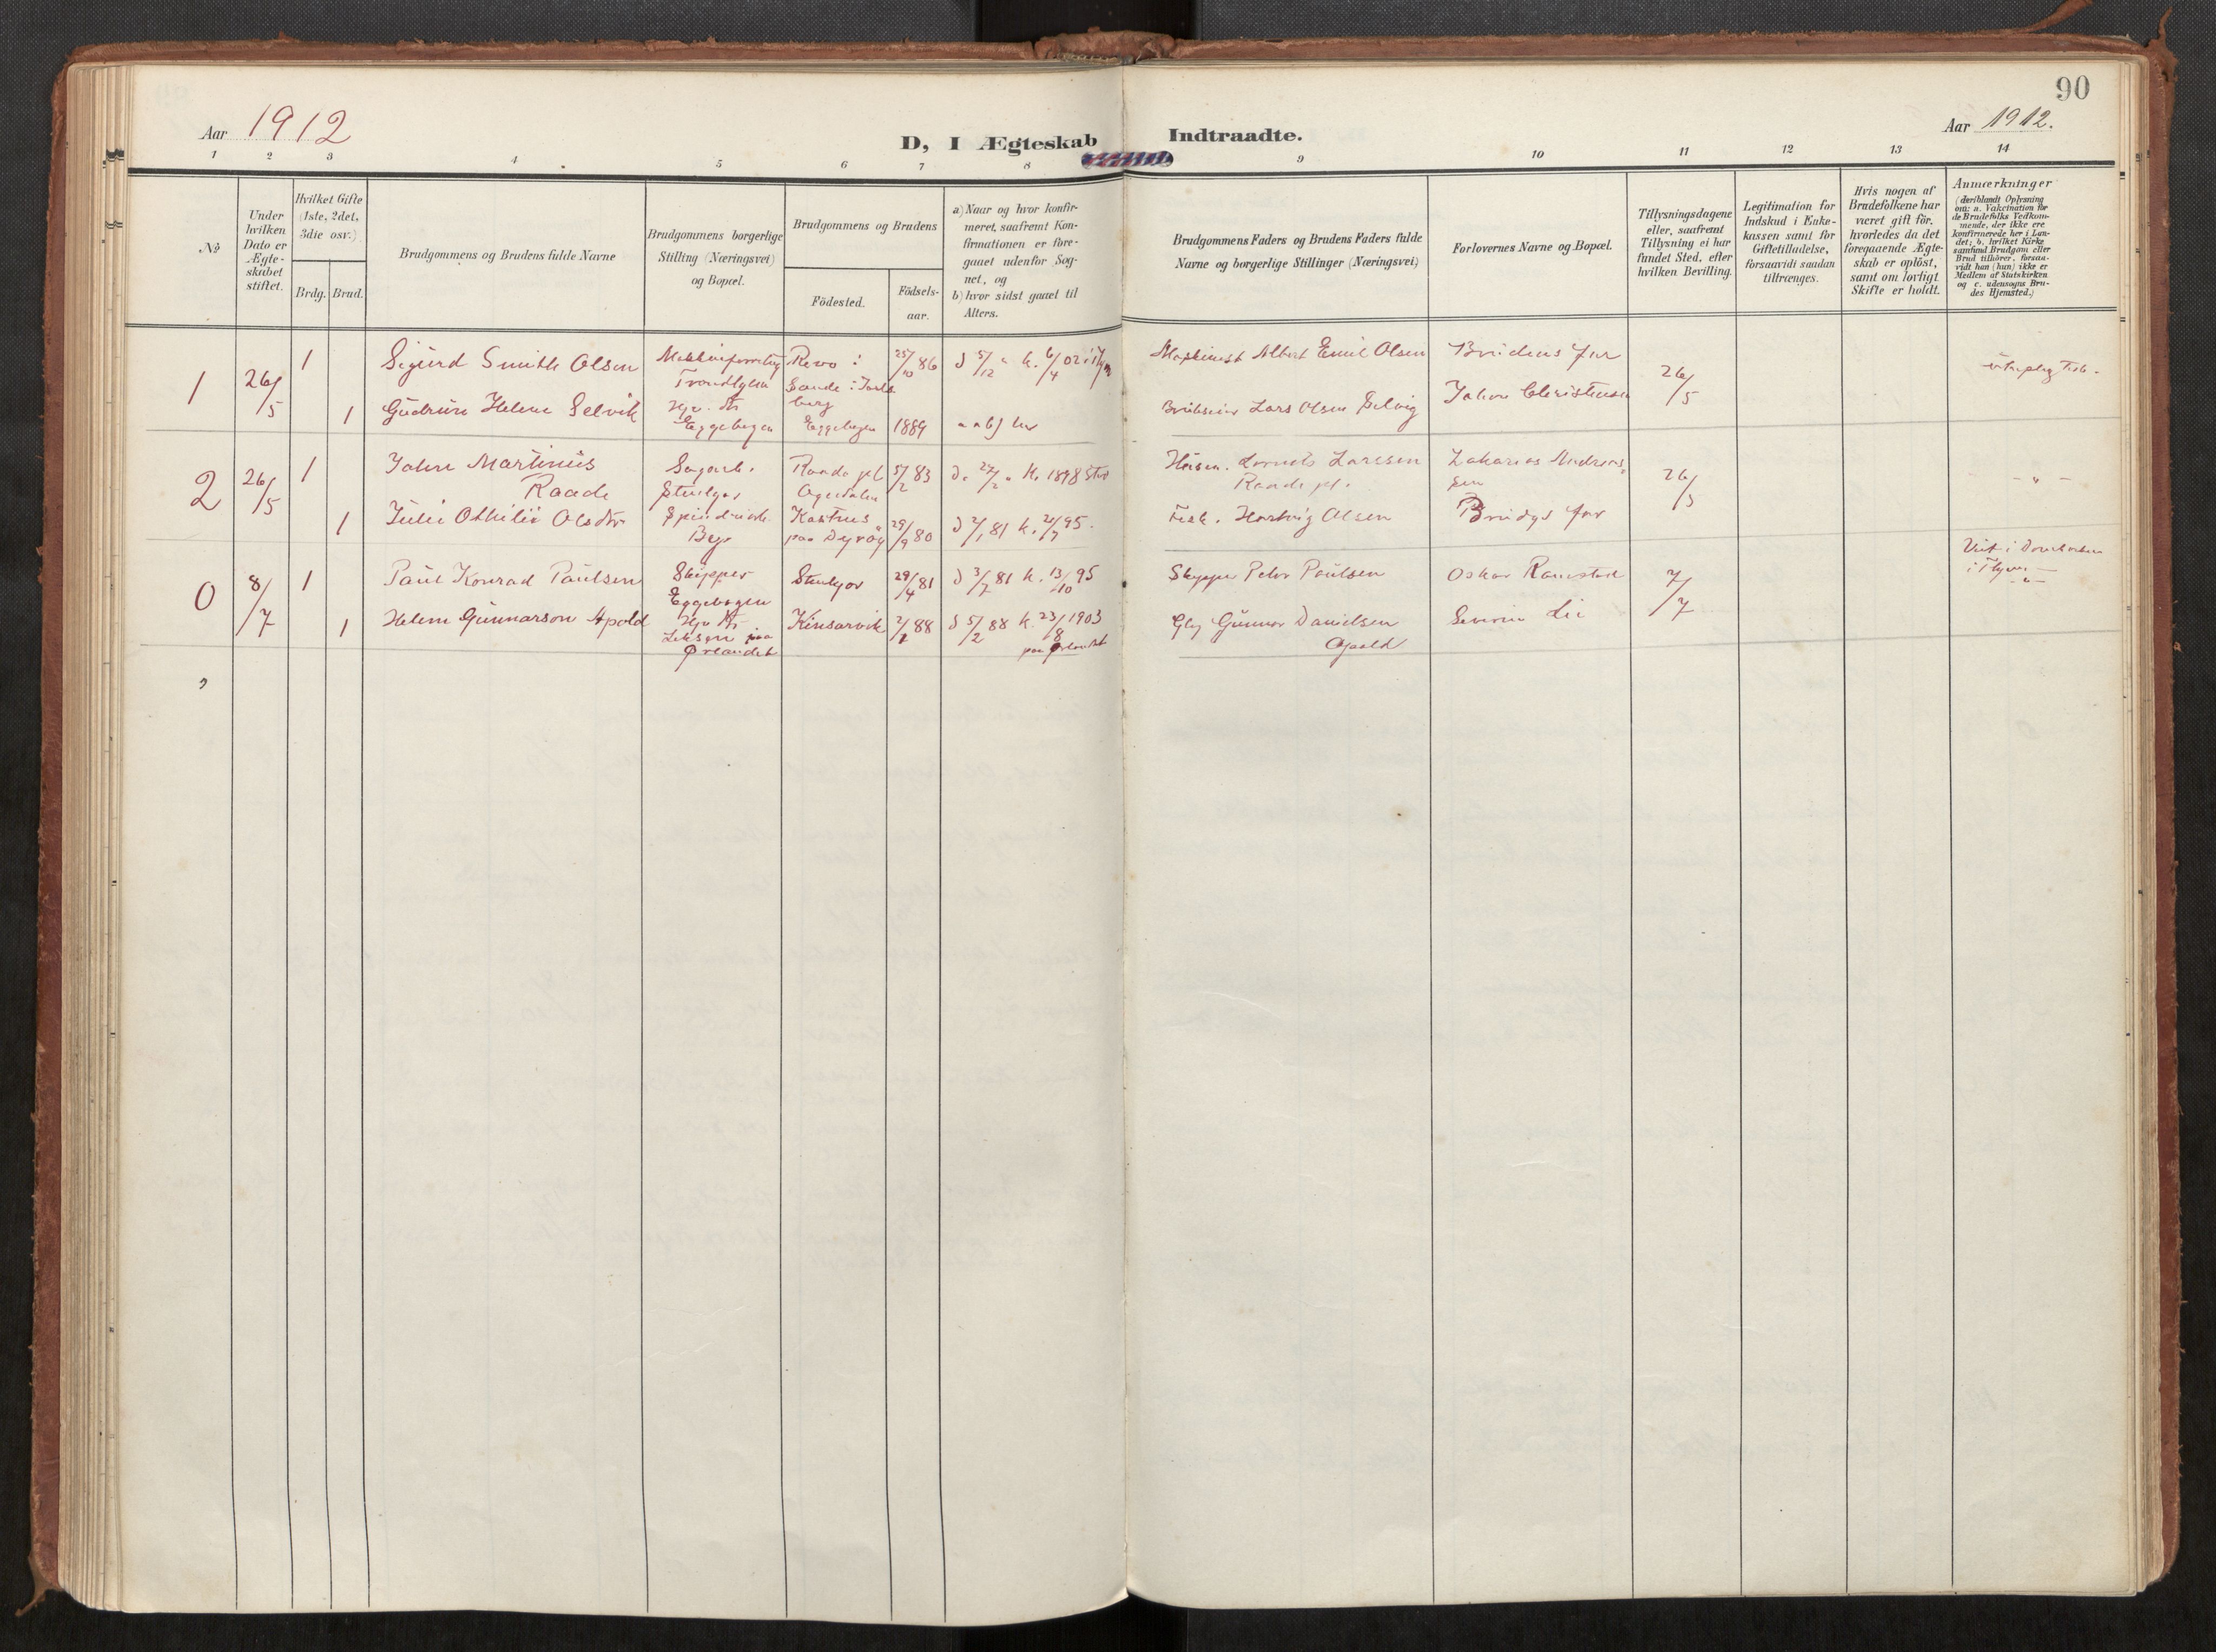 90
Aar 1912
D, I Ægteskab Indtraadte.
Aar 1912.
1 2 3 4 5 6 7 8 9 10 11 12 13 14
No
Under
hvilken
Dato er
Ægte-
skabet
stiftet.
Hvilket Gifte
(1ste, 2det,
3die osv.)
Brdg. Brud.
Brudgommens og Brudens fulde Navne
Brudgommens borgerlige
Stilling (Næringsvei)
og Bopæl.
Brudgommens og Brudens
Födested.
Födsels-
aar.
a) Naar og hvor konfir-
meret, saafremt Kon-
firmationen er fore-
gaaet udenfor Sog-
net, og
b) hvor sidst gaaet til
Alters.
Brudgommens Faders og Brudens Faders fulde
Navne og borgerlige Stillinger (Næringsvei)
Forlovernes Navne og Bopæl.
Tillysningsdagene
eller, saafremt
Tillysning ei har
fundet Sted, efter
hvilken Bevilling.
Legitimation for
Indskud i Enke-
kassen samt for
Giftetilladelse,
forsaavidt saadan
tiltrænges.
Hvis nogen af
Brudefolkene har
været gift för,
hvorledes da det
foregaaende Ægte-
skab er oplöst,
samt om lovligt
Skifte er holdt.
Anmærkninger
(deriblandt Oplysning
om: a. Vakcination for
de Brudefolks Vedkom-
mende, der ikke ere
konfirmerede her i Lan-
det; b. hvilket Kirke
samfund Brudgom eller
Brud tilhörer, forsaa-
vidt han (hun) ikke er
Medlem af Statskirken
og c. udensogns Bru-
des Hjemsted.)
1 26/5 1 Sigurd Smith Olsen
Trondhjem
Revo i
Sande i Jarls
berg
25/10 86
d 5/12 " k. 6/4 02 i Thjm
Maskinist Albert Emil Olsen
Brudens far
26/5
1 Gudrun Helene Selvik
Eggebogen
Eggebogen 1889
Lars Olsen Selvig
Johan Christensen
2 26/5 1 Johan Martinus
Raade
Sagarb.
Stenkjær
Raade pl
5/2 83
d. 27/2 " k. 1898
Larssen
Raade pl.
Zakarias Andreas-
sen
26/5
- " -
1 Julie Othilie Olsdtr
paa Dyrøy
29/9 80
d 2/1 81 k. 21/7 95.
Fisk. Hartvig Olsen
Brudgs far
0 8/7 1 Paul Konrad Paulsen
Skipper
Eggebogen
Stenkjær
29/4 81
d 3/7 81 k. 13/10 95
Skipper Peter Paulsen
Oskar Ramstad
7/7
Viet i Domkirken
i Thjem
- " -
1 Helene Gunnarson Apold
Ørlandet
Kinsarvik
2/1 88
d 5/2 88 k. 23/8 1903
paa Ørlandet
Gunnar Danielsen
Opold
Severin Lie